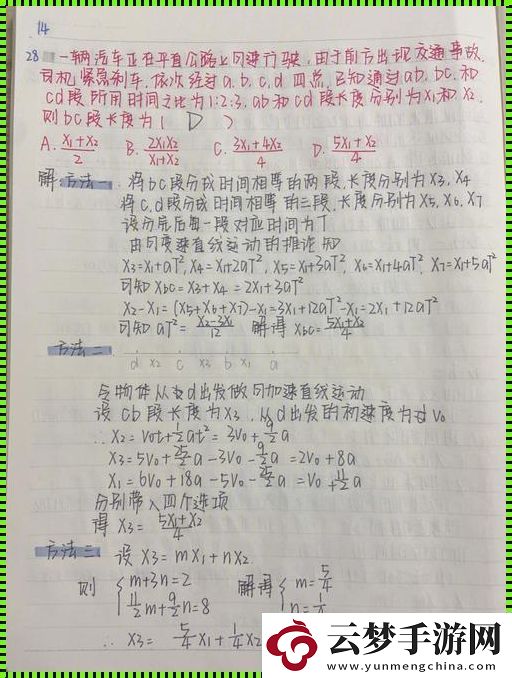 14
28 一辆汽车正在平直公路上匀速行驶,由于前方出现交通事故,
司机紧急刹车,依次经过a.b.c.d四点,已知通过ab,bc,和
cd段所用时间之比为1:2:3,ab和cd段长度分别为X₁和X₂,
则bc段长度为( D )
A. (X₁+X₂)/2 B. 2X₁X₂/(X₁+X₂) C. (3X₁+4X₂)/4 D. (5X₁+X₂)/4
解:方法一 将bc段分成时间相等的两段,长度分别为X₃,X₄
将c,d段分成时间相等的三段,长度分别为X₅,X₆,X₇
设分完后每一段对应时间为T
由匀变速直线运动的推论知
X₃=X₁+aT²,X₄=X₁+2aT²,X₅=X₁+3aT²,X₆=X₁+4aT²,X₇=X₁+5aT²
可知Xbc=X₃+X₄=2X₁+3aT²
X₂-X₁=(X₅+X₆+X₇)-X₁=3X₁+12aT²-X₁=2X₁+12aT²
可知aT²=(X₂-3X₁)/12 解得Xbc=(5X₁+X₂)/4
方法二
d X₂ c X₃ b X₁ a
令物体从d出发做匀加速直线运动
设cb段长度为X₃,从d出发的初速度为V₀
∴X₂=V₀t+½at²=3V₀+9/2a
X₃=5V₀+25/2a-3V₀-9/2a=2V₀+8a
X₁=6V₀+18a-5V₀-25/2a=V₀+11/2a
分别带入四个选项
得X₃=(5X₁+X₂)/4
方法三 设X₃=mX₁+nX₂
则 { m+3n=2 解得 { m=5/4
11/2m+9/2n=8 n=1/4
∴X₃=5/4X₁+1/4X₂
云梦手游网
www.yunmengchina.com